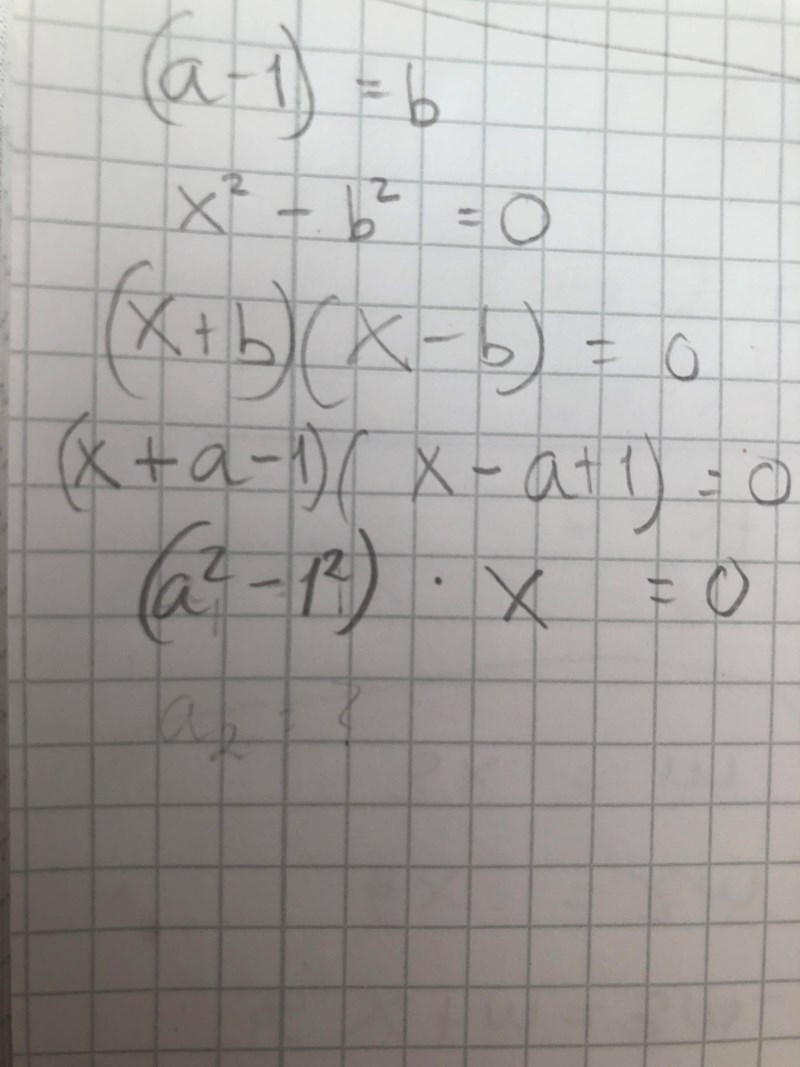 (a-1) = b
x² - b² = 0
(x+b)(x-b) = 0
(x+a-1)( x-a+1) = 0
(a²-1²) · x = 0